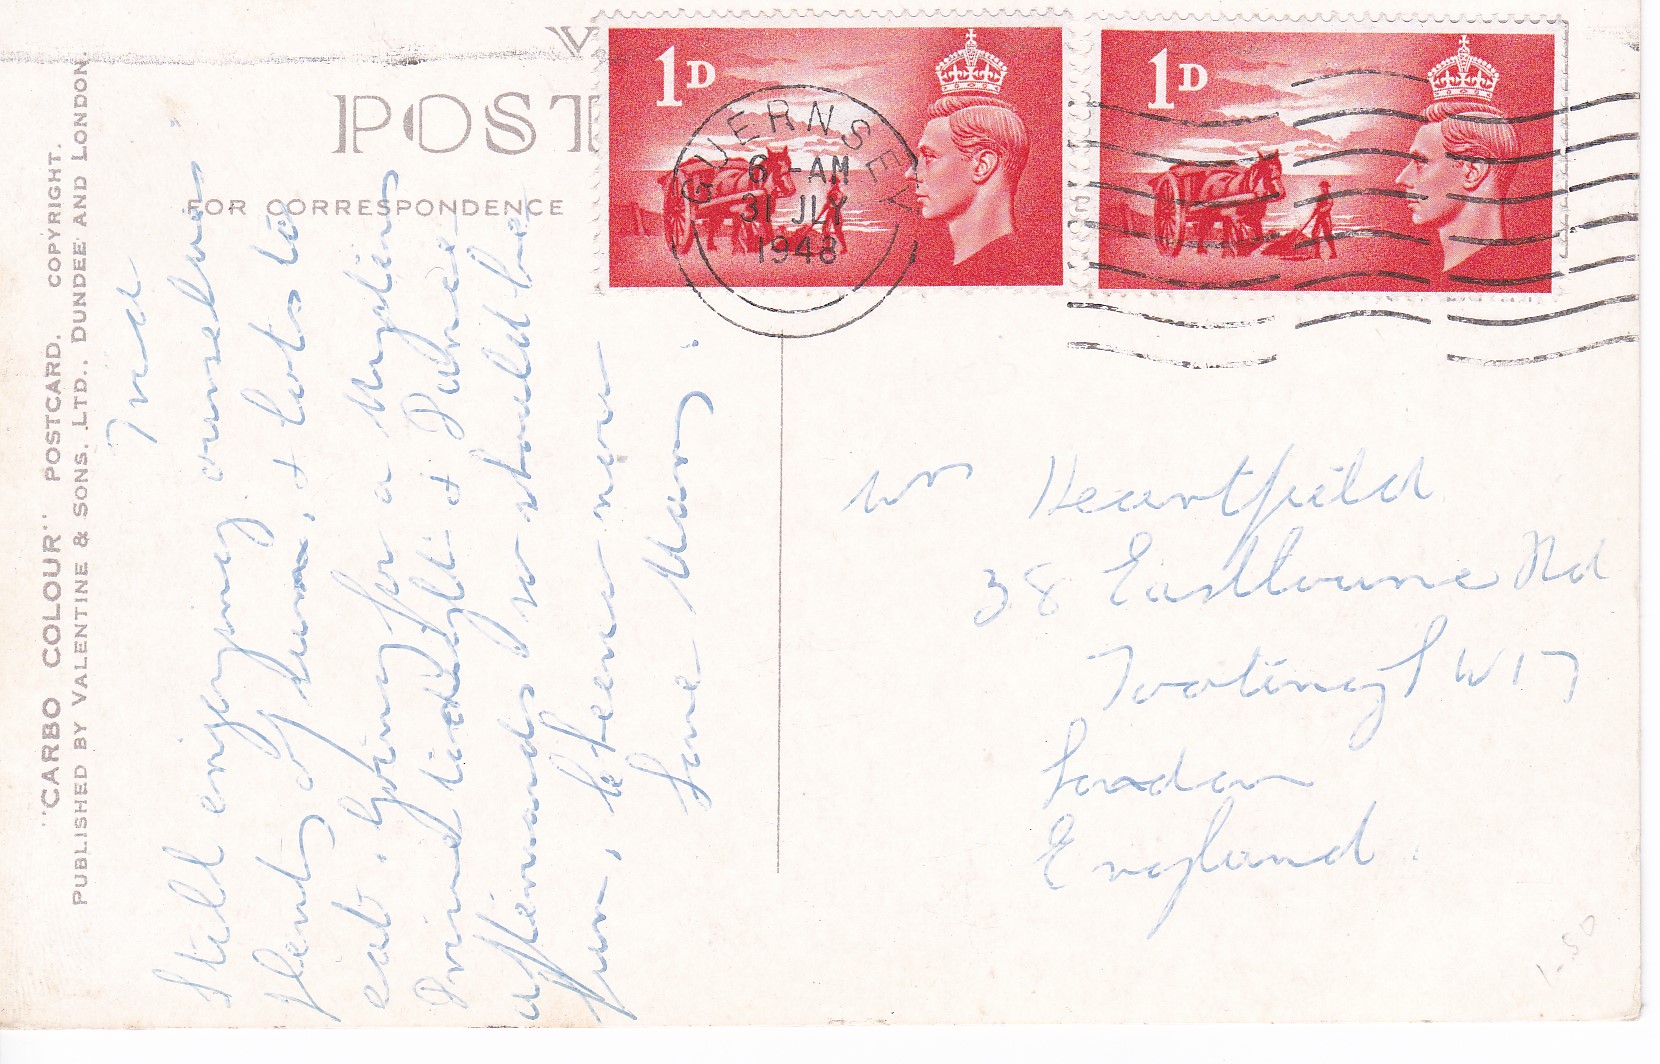 "CARBO COLOUR" POSTCARD. COPYRIGHT.
PUBLISHED BY VALENTINE & SONS, LTD., DUNDEE AND LONDON.
POST
FOR CORRESPONDENCE
1D
1D
GUERNSEY
6-AM
31 JLY
1948
Still enjoying ourselves
plenty of sun, + lots to
eat. Going for a mystery
drive tonight + Dance
afterwards so should be
fun, between now
Love Mary.
Mr Heartfield
38 Eastbourne Rd
Tooting SW17
London
England.
1-50